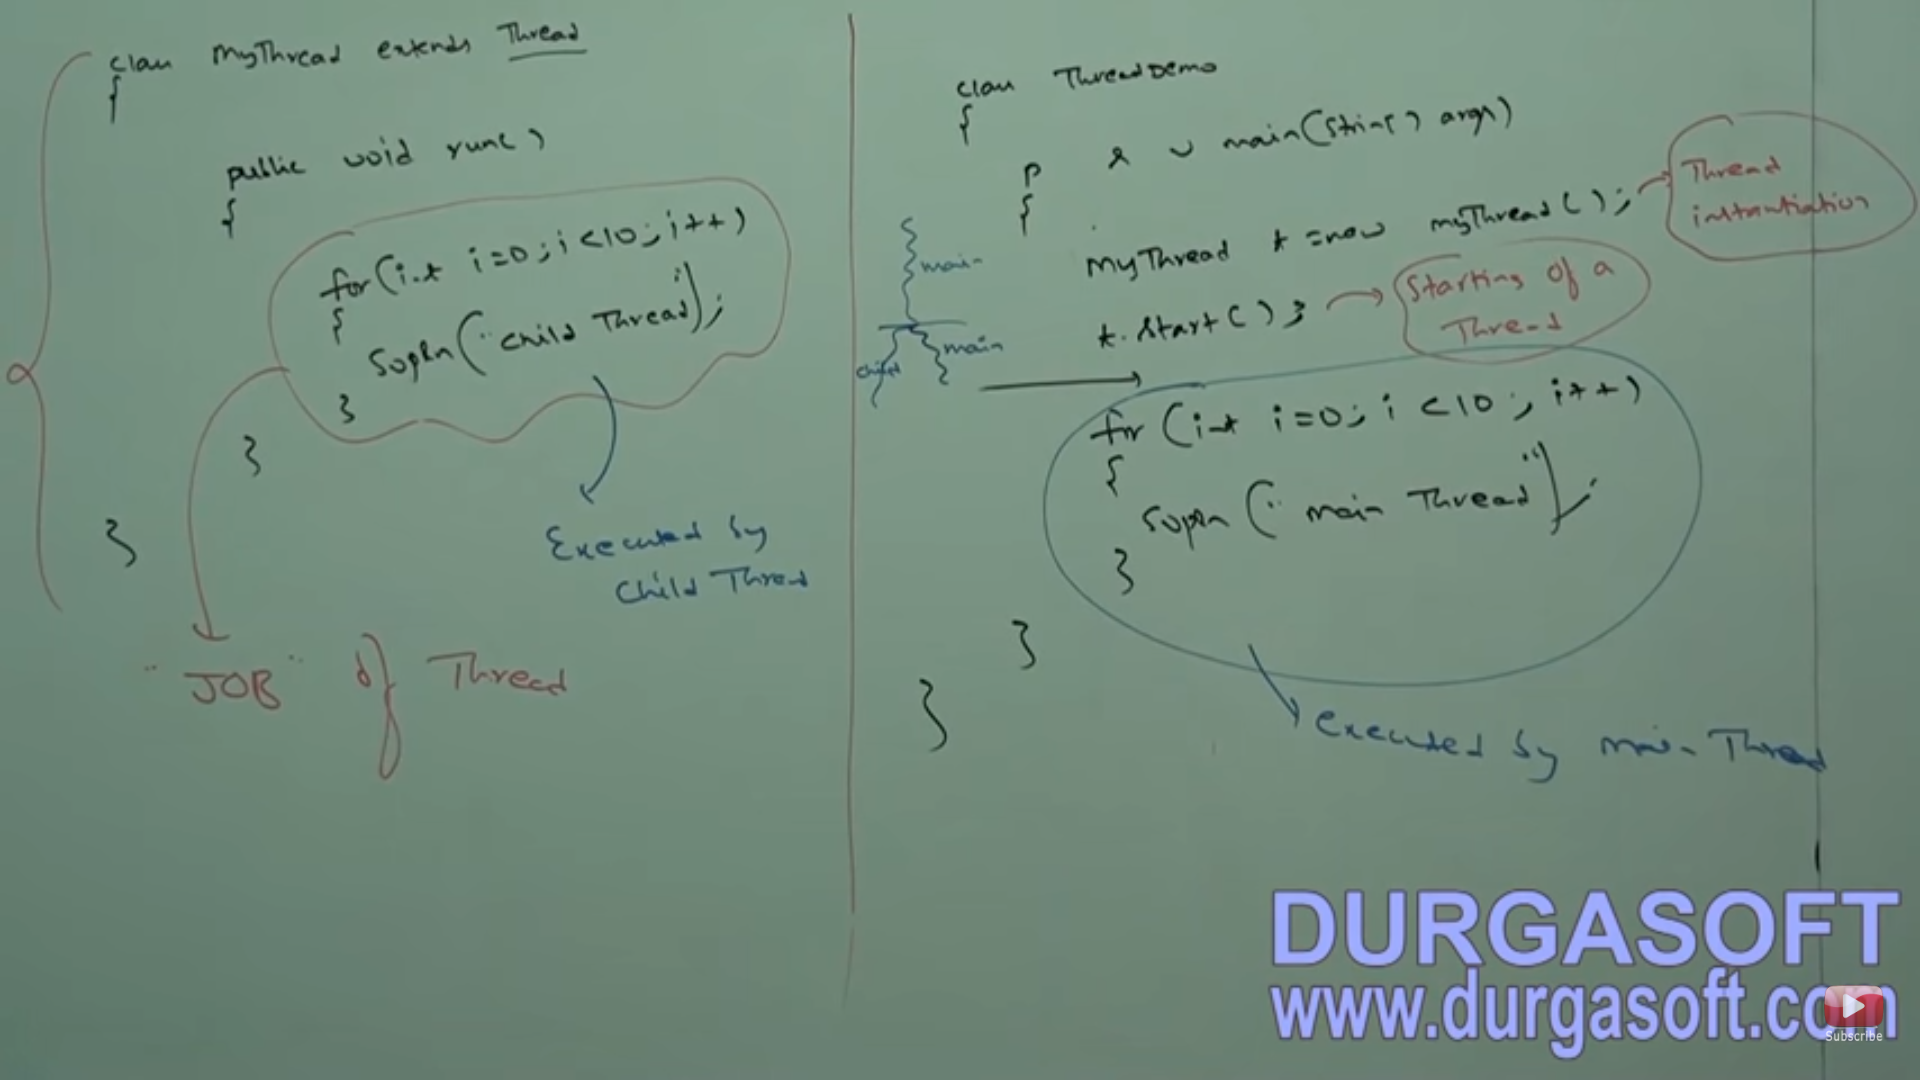 class MyThread extends Thread
{
public void run()
{
for(int i=0; i<10; i++)
{
Sopln("child Thread");
}
}
}
Executed by
Child Thread
"JOB" of Thread
class ThreadDemo
{
p s v main(String[] args)
{
MyThread t = new MyThread();
Thread
instantiation
t.start();
Starting of a
Thread
main
child
main
for(int i=0; i<10; i++)
{
Sopln("main Thread");
}
}
}
executed by main Thread
DURGASOFT
www.durgasoft.com
Subscribe